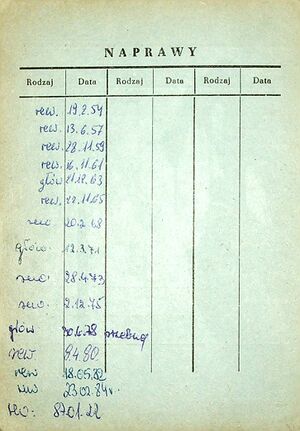 NAPRAWY
Rodzaj Data Rodzaj Data Rodzaj Data
rew. 19.2.54
rew. 13.6.57
rew. 28.11.59
rew. 16.11.61
głów 21.12.63
rew. 22.11.65
rew. 20.2.68
głów. 12.2.71
rew. 28.4.73
rew. 2.12.75
głów 30.6.78
rew 9.4.80
rew 18.05.82
rew 23.02.84r.
rew: 87.01.22